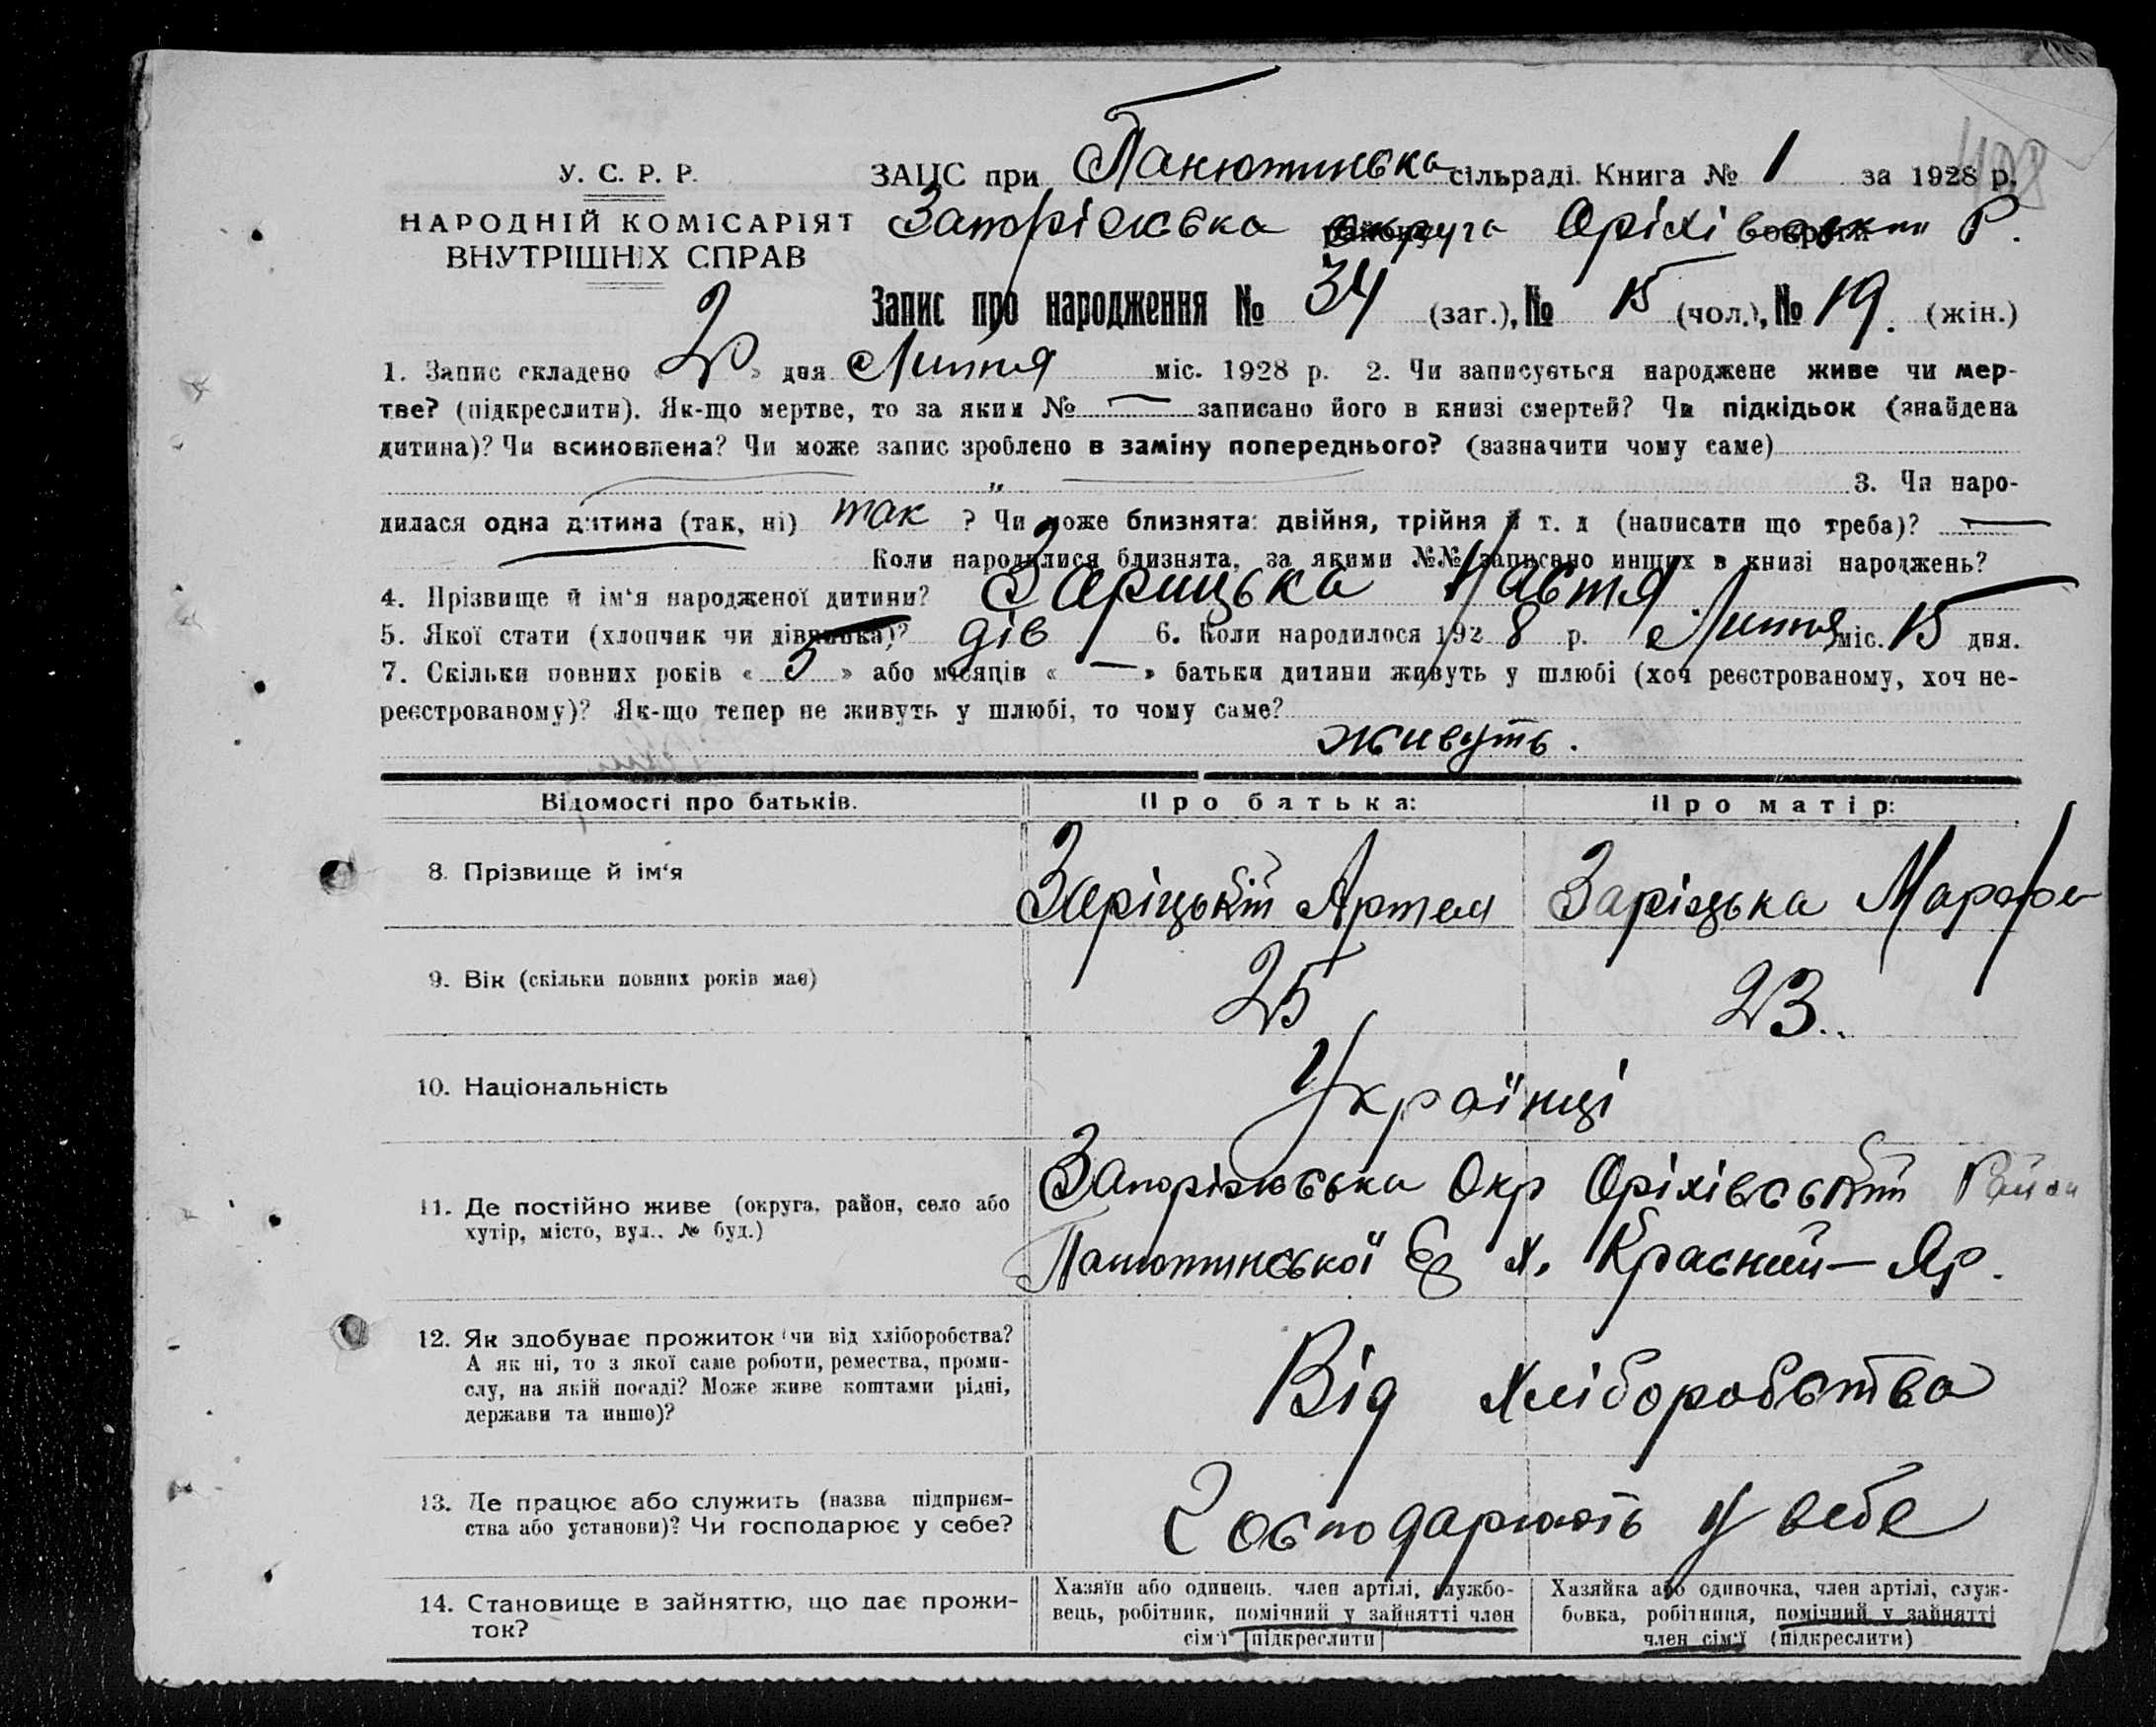 У. С. Р. Р.
НАРОДНІЙ КОМІСАРІЯТ
ВНУТРІШНІХ СПРАВ
ЗАЦС при Панютинська сільраді. Книга № 1 за 1928 р.
Запоріжська округа Оріхівський Р.
Запис про народження № 34 (заг.), № 15 (чол.), № 19. (жін.)
1. Запис складено « » дня Липня міс. 1928 р. 2. Чи записується народжене живе чи мер-
тве? (підкреслити). Як-що мертве, то за яким № — записано його в книзі смертей? Чи підкідьок (знайдена
дитина)? Чи всиновлена? Чи може запис зроблено в заміну попереднього? (зазначити чому саме)
3. Чи наро-
дилася одна дитина (так, ні) так ? Чи може близнята: двійня, трійня й т. д (написати що треба)? —
Коли народилися близнята, за якими №№ записано инщих в книзі народжень?
4. Прізвище й ім'я народженої дитини? Зарицька Настя
5. Якої стати (хлопчик чи дівчинка)? дів 6. Коли народилося 1928 р. Липня міс. 15 дня.
7. Скільки повних років « 5 » або місяців « — » батьки дитини живуть у шлюбі (хоч реєстрованому, хоч не-
реєстрованому)? Як-що тепер не живуть у шлюбі, то чому саме?
живуть.
Відомості про батьків. Про батька: Про матір:
8. Прізвище й ім'я Заріцький Артем Заріцька Марфа
9. Вік (скільки повних років має) 25 23..
10. Національність Українці
11. Де постійно живе (округа, район, село або
хутір, місто, вул., № буд.)
Запоріжська Окр Оріхівський Район
Панютинської х. Красний-Яр.
12. Як здобуває прожиток (чи від хліборобства?
А як ні, то з якої саме роботи, ремества, проми-
слу, на якій посаді? Може живе коштами рідні,
держави та инше)?
Від хліборобства
13. Де працює або служить (назва підприєм-
ства або установи)? Чи господарює у себе?
Господарюють у себе
14. Становище в зайняттю, що дає прожи-
ток?
Хазяїн або одинець, член артілі, службо-
вець, робітник, помічний у зайнятті член
сім'ї [підкреслити]
Хазяйка або одиночка, член артілі, служ-
бовка, робітниця, помічний у зайнятті
член сім'ї (підкреслити)